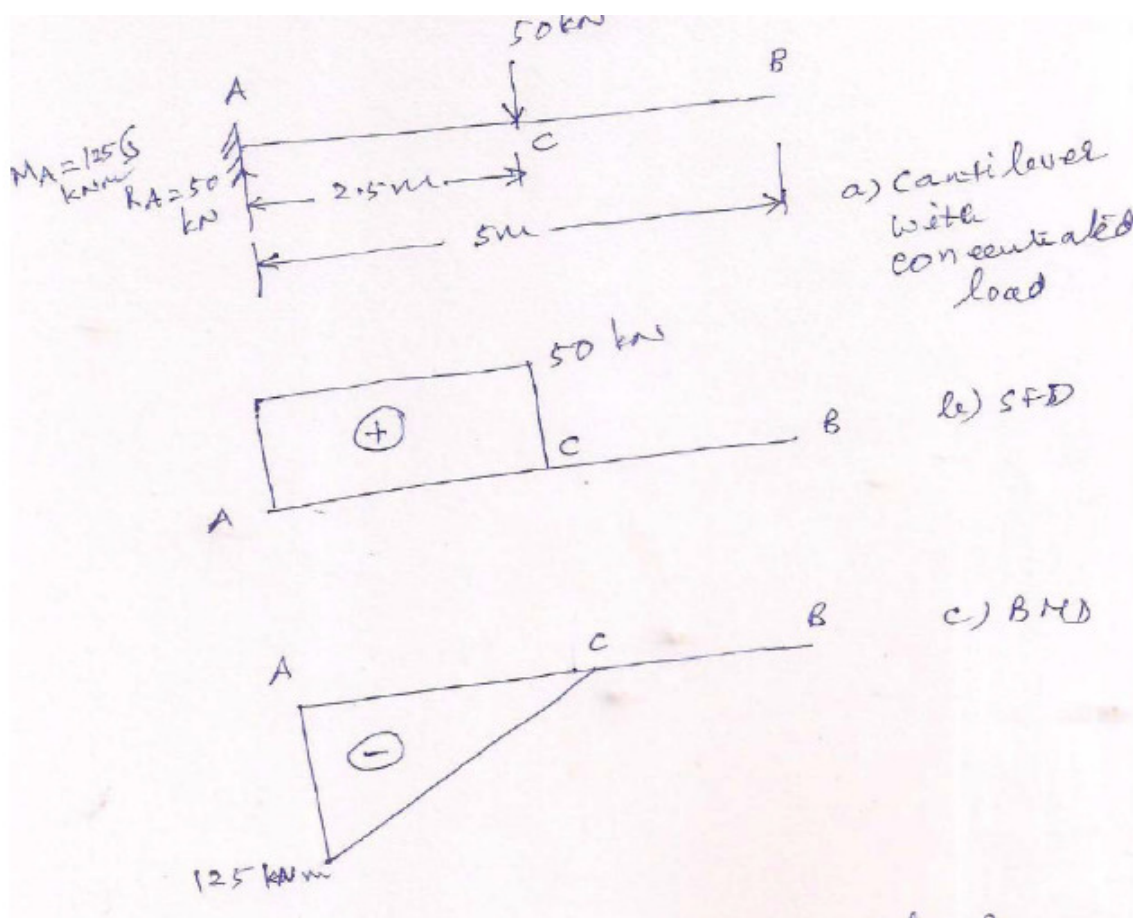 50kN
A
B
MA=125
kNm
RA=50
kN
C
2.5m
5m
a) Cantilever
with
concentrated
load
50 kN
+
C
B
A
b) SFD
A
C
B
c) BMD
-
125 kNm